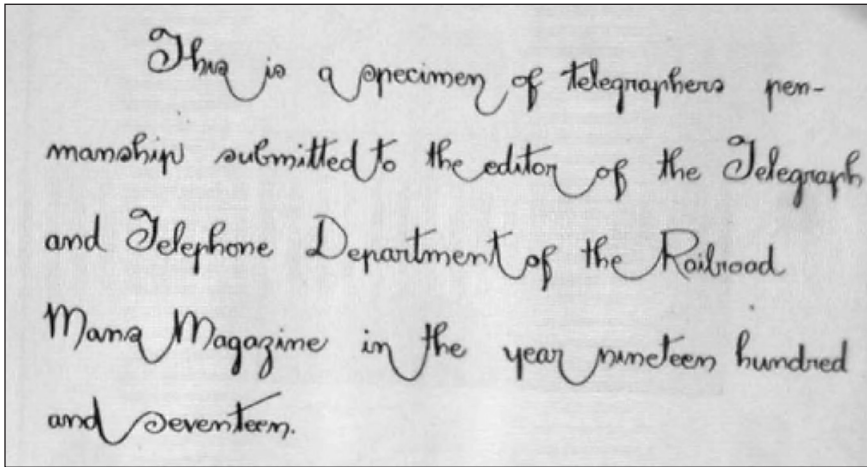 This is a specimen of telegraphers pen-
manship submitted to the editor of the Telegraph
and Telephone Department of the Railroad
Mans Magazine in the year nineteen hundred
and seventeen.